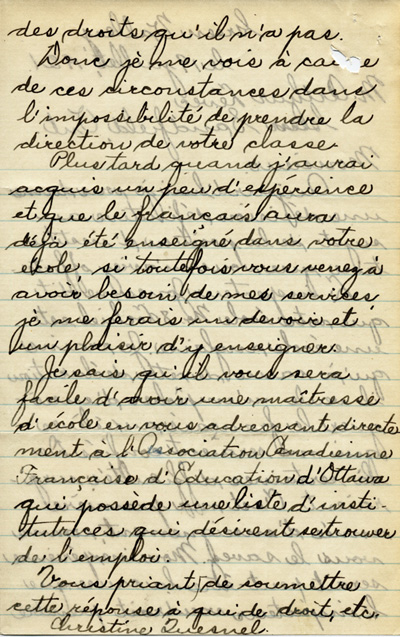 des droits qu'il n'a pas.
Donc je me vois à cause
de ces circonstances dans
l'impossibilité de prendre la
direction de votre classe.
Plus tard quand j'aurai
acquis un peu d'expérience
et que le français aura
déjà été enseigné dans votre
école, si toutefois vous venez à
avoir besoin de mes services,
je me ferais un devoir et
un plaisir d'y enseigner.
Je sais qu'il vous sera
facile d'avoir une maîtresse
d'école en vous adressant directe
ment à l'Association Canadienne
Française d'Education d'Ottawa
qui possède une liste d'insti-
tutrices qui désirent se trouver
de l'emploi.
Vous priant de soumettre
cette réponse à qui de droit, etc.
Christine Quesnel.